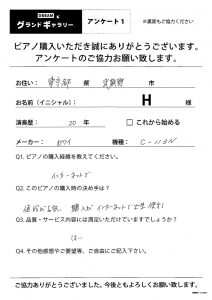 グランドギャラリー アンケート1 ※裏面もご協力ください
ピアノ購入いただき誠にありがとうございます。
アンケートのご協力お願い致します。
お住い: 東京都 県 武蔵野 市
お名前(イニシャル): H 様
演奏歴: 20 年 □ これから始める
メーカー: カワイ 機種: C-113N
Q1. ピアノの購入経緯を教えてください。
インターネットで
Q2. このピアノの購入時の決め手は?
購入が インターネットで
Q3. 品質・サービス内容には満足いただけていますでしょうか?
はい
Q4. その他感想やご要望等、ご自由にご記入下さい。
ご協力ありがとうございました。今後ともよろしくお願い致します。